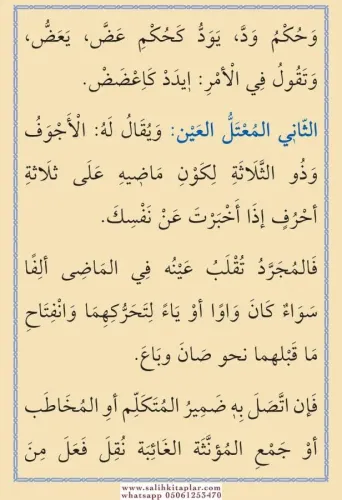 وَحُكْمُ وَدَّ، يَوَدُّ كَحُكْمِ عَضَّ، يَعَضُّ،
وَتَقُولُ فِي الْأمْرِ: إيدَدْ كَاِعْضَضْ.
الثّانِي المُعْتَلُّ العَيْن: وَيُقَالُ لَهُ: الْأجْوَفُ
وَذُو الثَّلَاثَةِ لِكَوْنِ مَاضِيهِ عَلَى ثلَاثةِ
أحْرُفٍ إذَا أَخْبَرْتَ عَنْ نَفْسِكَ.
فَالمُجَرَّدُ تُقْلَبُ عَيْنُه فِي المَاضِى ألِفًا
سَوَاءٌ كَانَ وَاوًا أوْ يَاءً لِتَحَرُّكِهِمَا وَانْفِتَاحِ
مَا قَبْلهما نحو صَانَ وبَاعَ.
فَإن اتَّصَلَ بِهِ ضَمِيرُ المُتَكلِّم أوِ المُخَاطَب
أوْ جَمْعِ المُؤنَّثَة الغَائِبَة نُقِلَ فَعَلَ مِنَ
www.salihkitaplar.com
whatsapp 05061253470